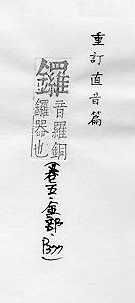 重訂直音篇
鑼
音羅銅
鑼器也
(卷五·金部·